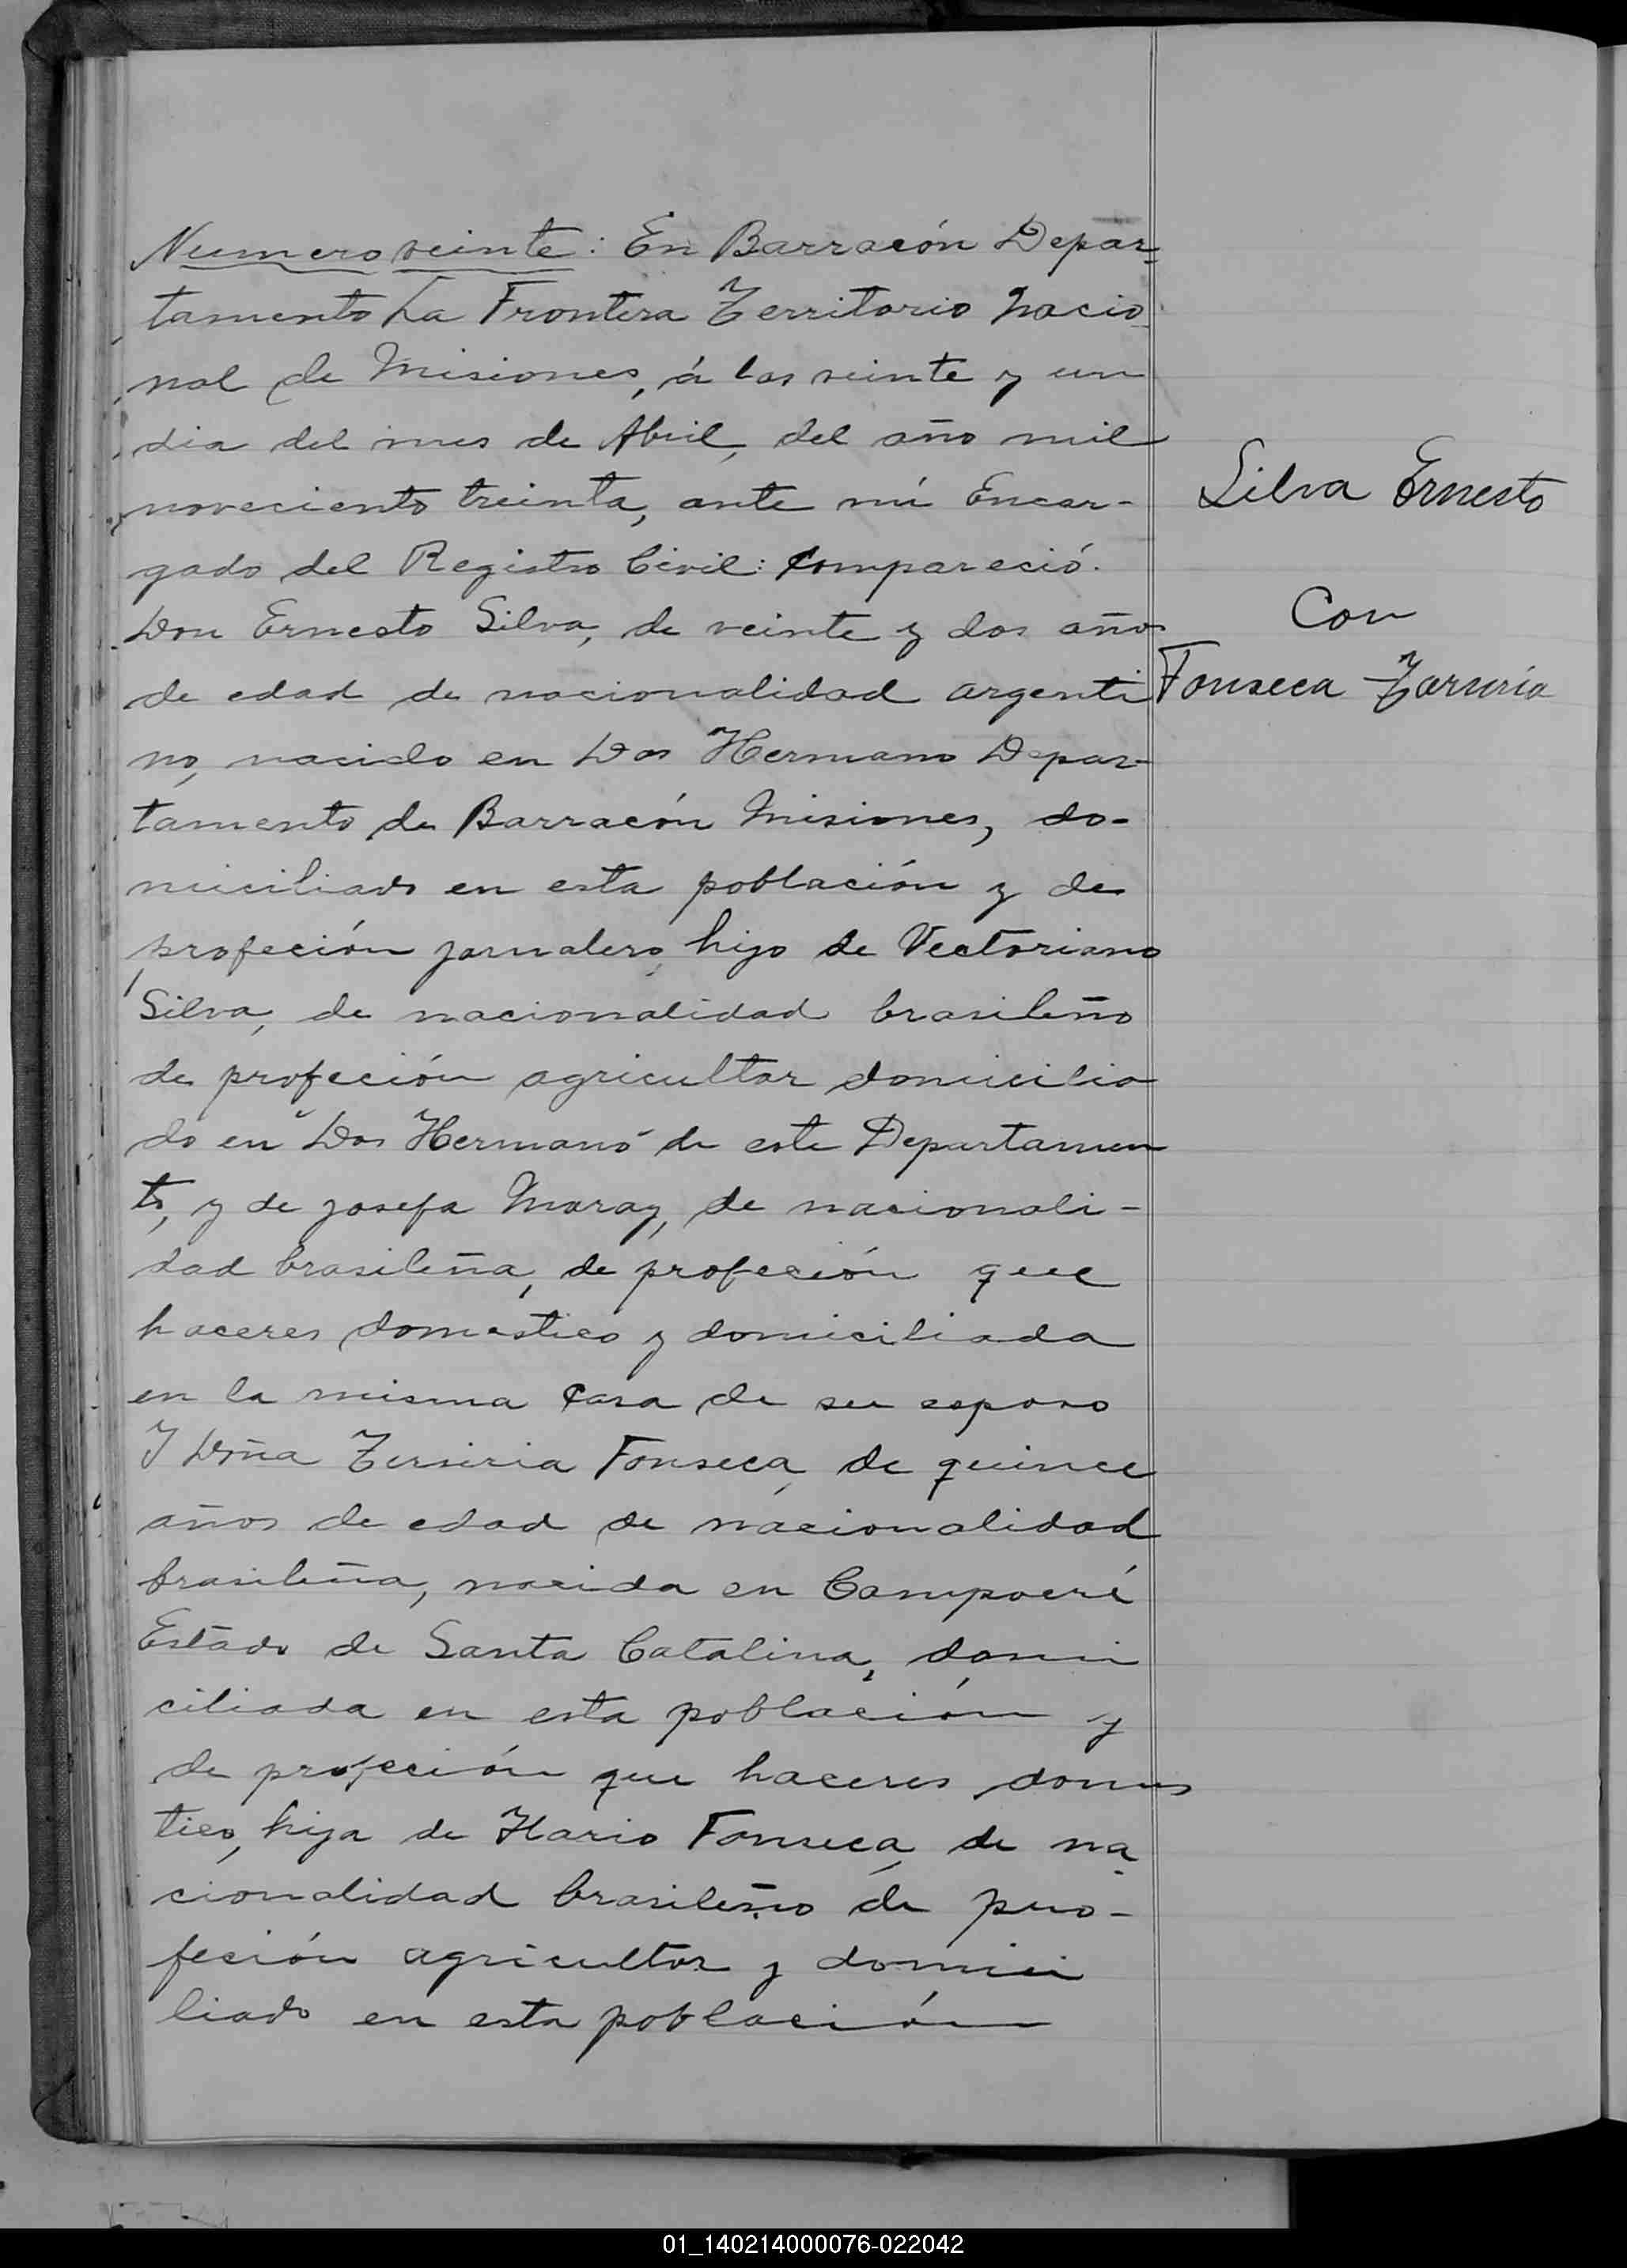 Numero veinte: En Barracón Depar-
tamento La Frontera Territorio nacio-
nal de Misiones, á los veinte y un
dia del mes de Abril, del año mil
noveciento treinta, ante mí Encar-
gado del Registro Civil: Compareció.
Don Ernesto Silva, de veinte y dos años
de edad de nacionalidad argenti
no, nacido en Dos Hermano Depar-
tamento de Barracón Misiones, do-
miciliado en esta población y de
profeción jornalero, hijo de Vectoriano
Silva, de nacionalidad brasileño
de profeción agricultor domicilia
do en "Dos Hermano" de este Departamen
to, y de Josefa Moray, de nacionali-
dad brasileña, de profeción que
haceres domestico y domiciliada
en la misma Casa de su esposo
Y Doña Fonseca, de quince
años de edad de nacionalidad
brasileña, nacida en Campoeré
Estado de Santa Catalina, domi
ciliada en esta población y
de profeción que haceres domes
tico, hija de Fonseca, de na
cionalidad brasileño de pro-
feción agricultor y domici
liado en esta población
Silva Ernesto
Con
Fonseca
01_140214000076-022042